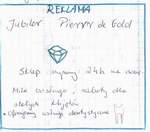 REKLAMA
Jubiler Pierre de Gold
Sklep czynny 24h na dobę
Miła obsługa, rabaty dla
stałych klientów
• Oferujemy usługi dentystyczne